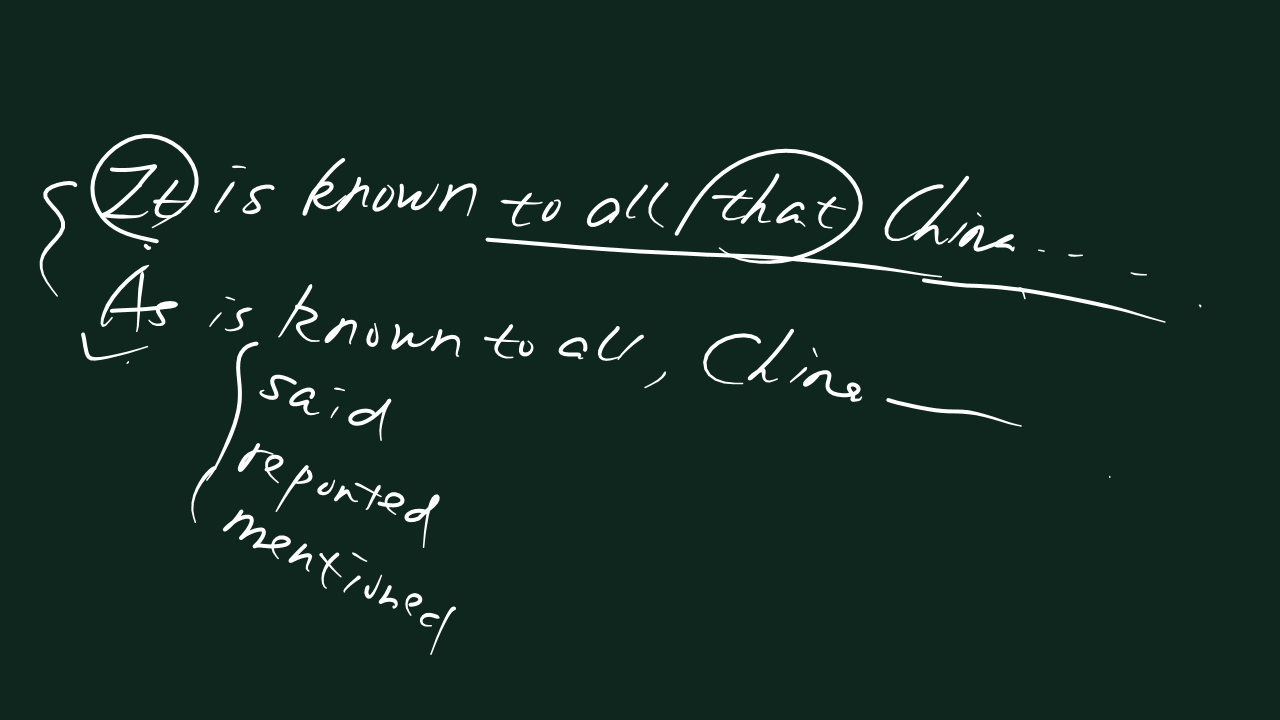 It is known to all that China....
As is known to all, China
said
reported
mentioned